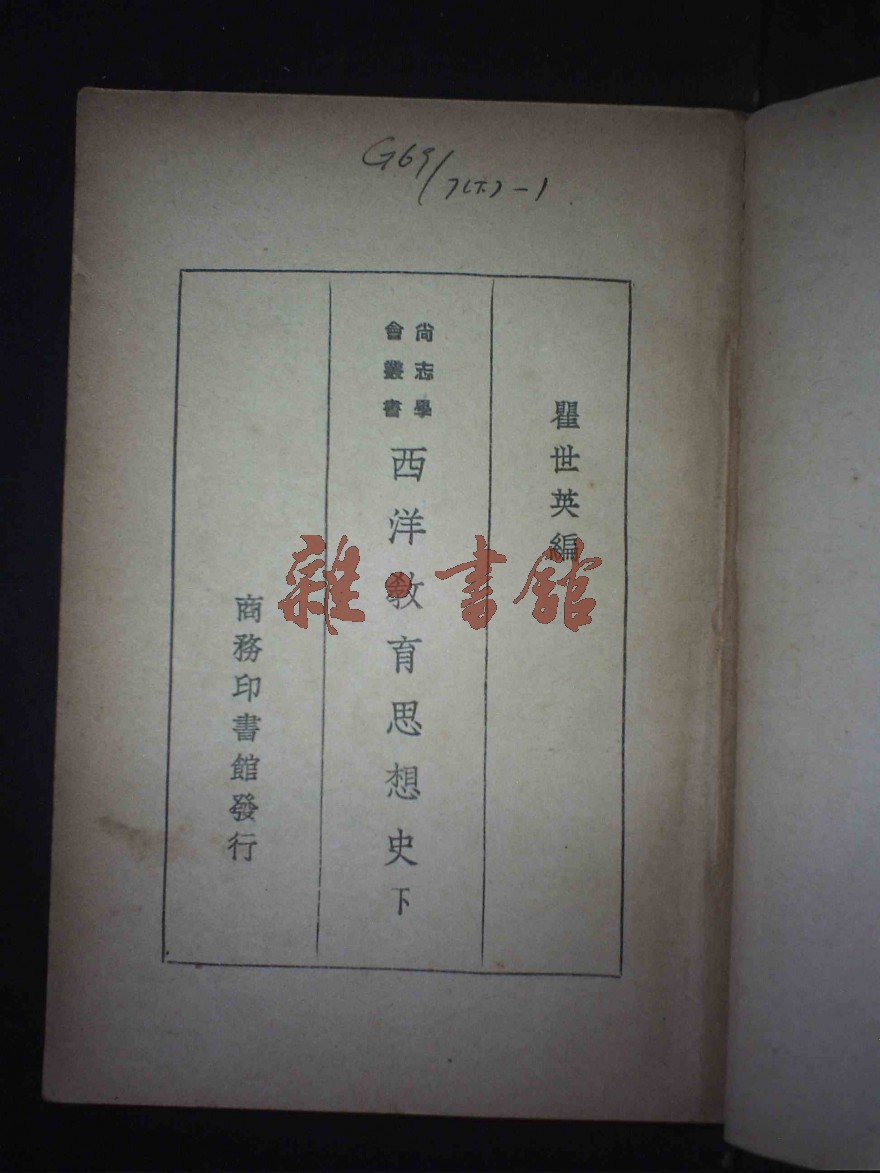 G69/7(下)-1
瞿世英編
尚志學
會叢書
西洋教育思想史下
商務印書館發行
雜·書館